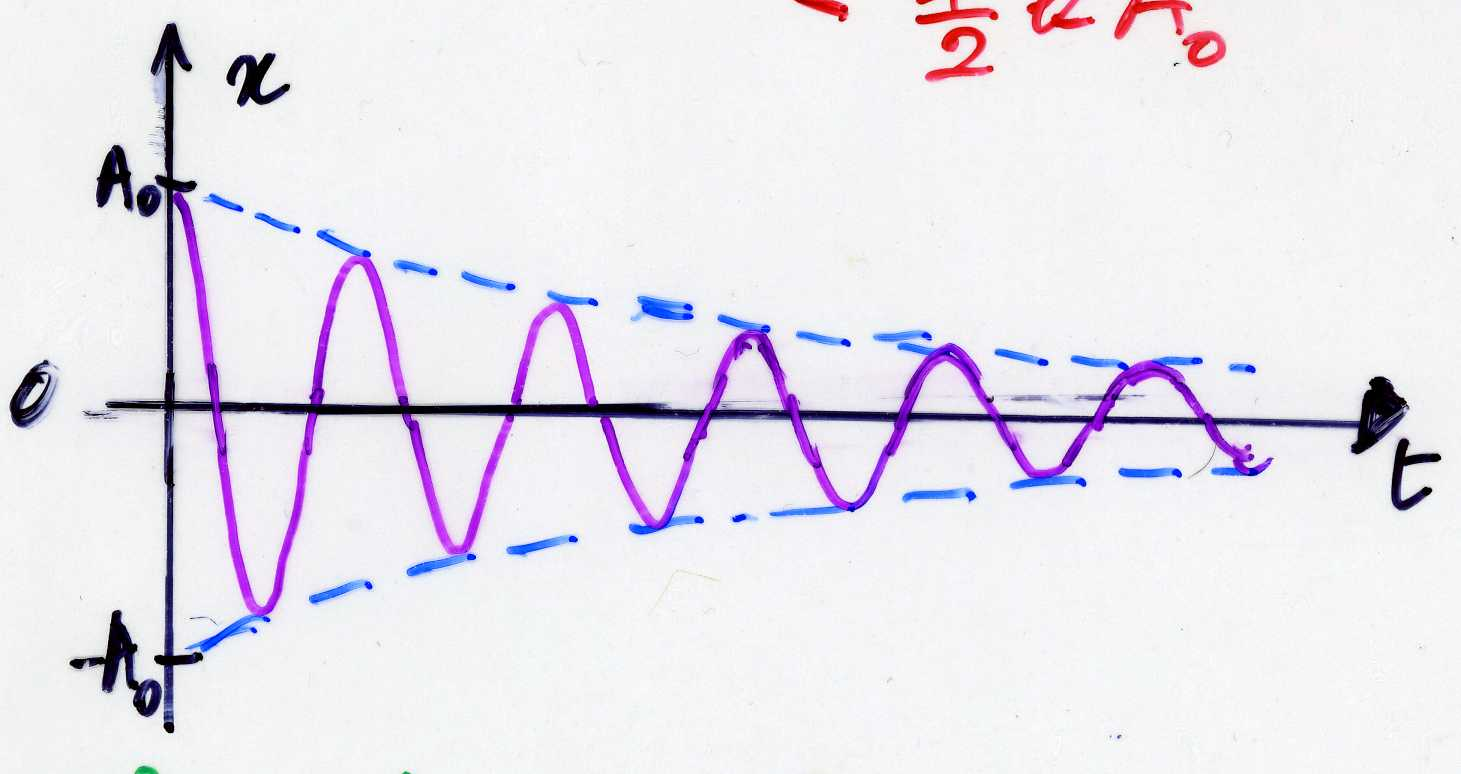 ½ k A₀
x
A₀
0
t
-A₀